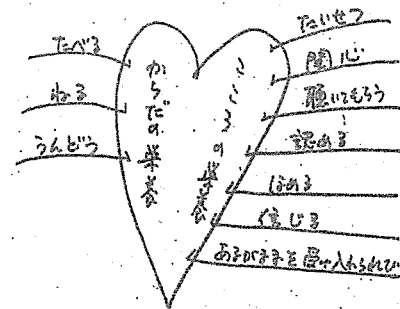 たべる
ねる
うんどう
からだの栄養
こころの栄養
たいせつ
関心
聴いてもらう
認める
ほめる
信じる
あるがままを受け入れられて